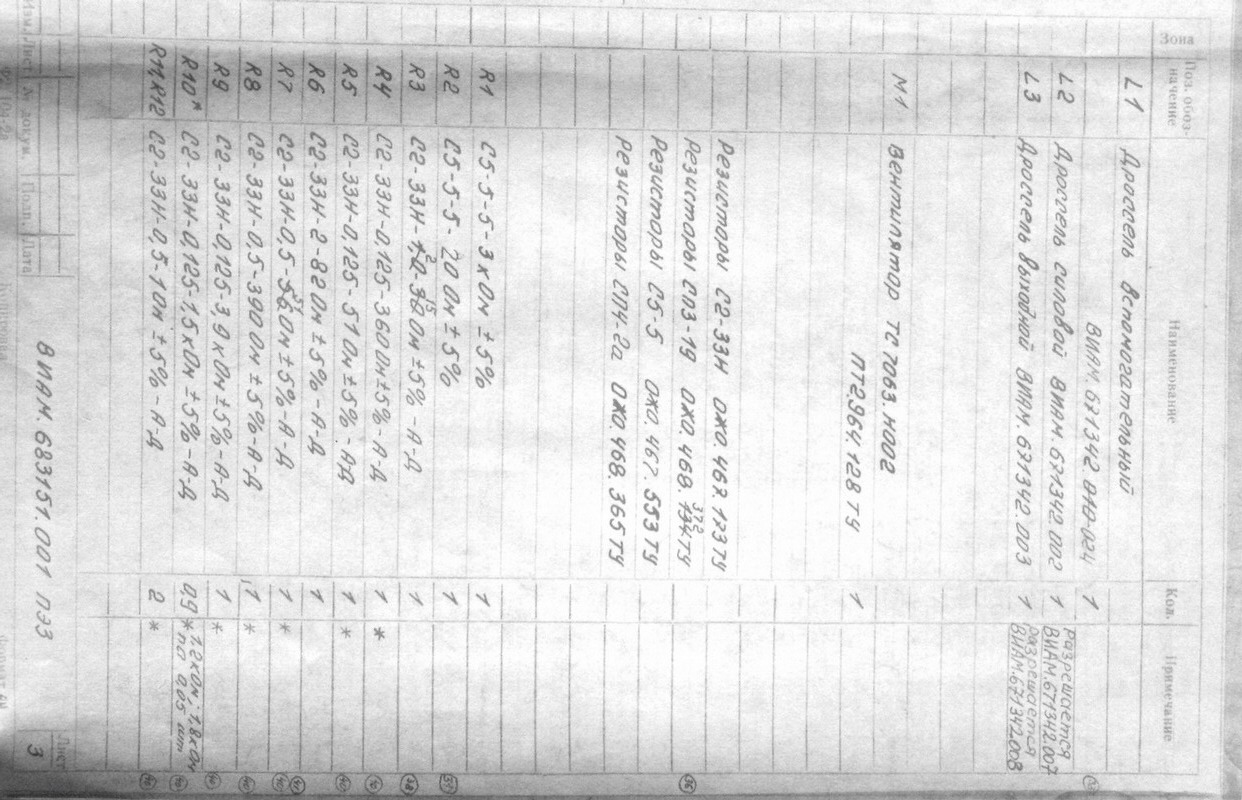 Зона Поз. обоз- Наименование Кол. Примечание
начение
L1 Дроссель вспомогательный
ВИАМ.671342 010-024 1
L2 Дроссель силовой ВИАМ.671342.002 1 разрешается ВИАМ.671342.007
L3 Дроссель выходной ВИАМ.671342.003 1 разрешается ВИАМ.671342.008
М1 Вентилятор ТС7063.Н002
ПТ2.964.128 ТУ 1
Резисторы С2-33Н ОЖО.467.173ТУ
Резисторы СП3-19 ОЖО.468. 372 ТУ
Резисторы С5-5 ОЖО.467.553ТУ
Резисторы СП4-2а ОЖО.468.365ТУ
R1 С5-5-5-3кОм ±5% 1
R2 С5-5-5- 20 Ом ±5% 1
R3 С2-33Н- Ом ±5% -А-Д 1
R4 С2-33Н-0,125-360Ом ±5% -А-Д 1 *
R5 С2-33Н-0,125-51Ом ±5% -АД 1 *
R6 С2-33Н-2-82Ом ±5% -А-Д 1
R7 С2-33Н-0,5- Ом ±5% -А-Д 1 *
R8 С2-33Н-0,5-390Ом ±5% -А-Д 1 *
R9 С2-33Н-0,125-3,9кОм ±5% -А-Д 1 *
R10* С2-33Н-0,125-1,5кОм ±5% -А-Д 0,9 * 1.2кОм; 1.8кОм
по 0,05 шт
R11,R12 С2-33Н-0,5-1Ом ±5% -А-Д 2 *
Изм. Лист № докум. Подп. Дата
ВИАМ.683151.001 ПЭ3
Лист
3